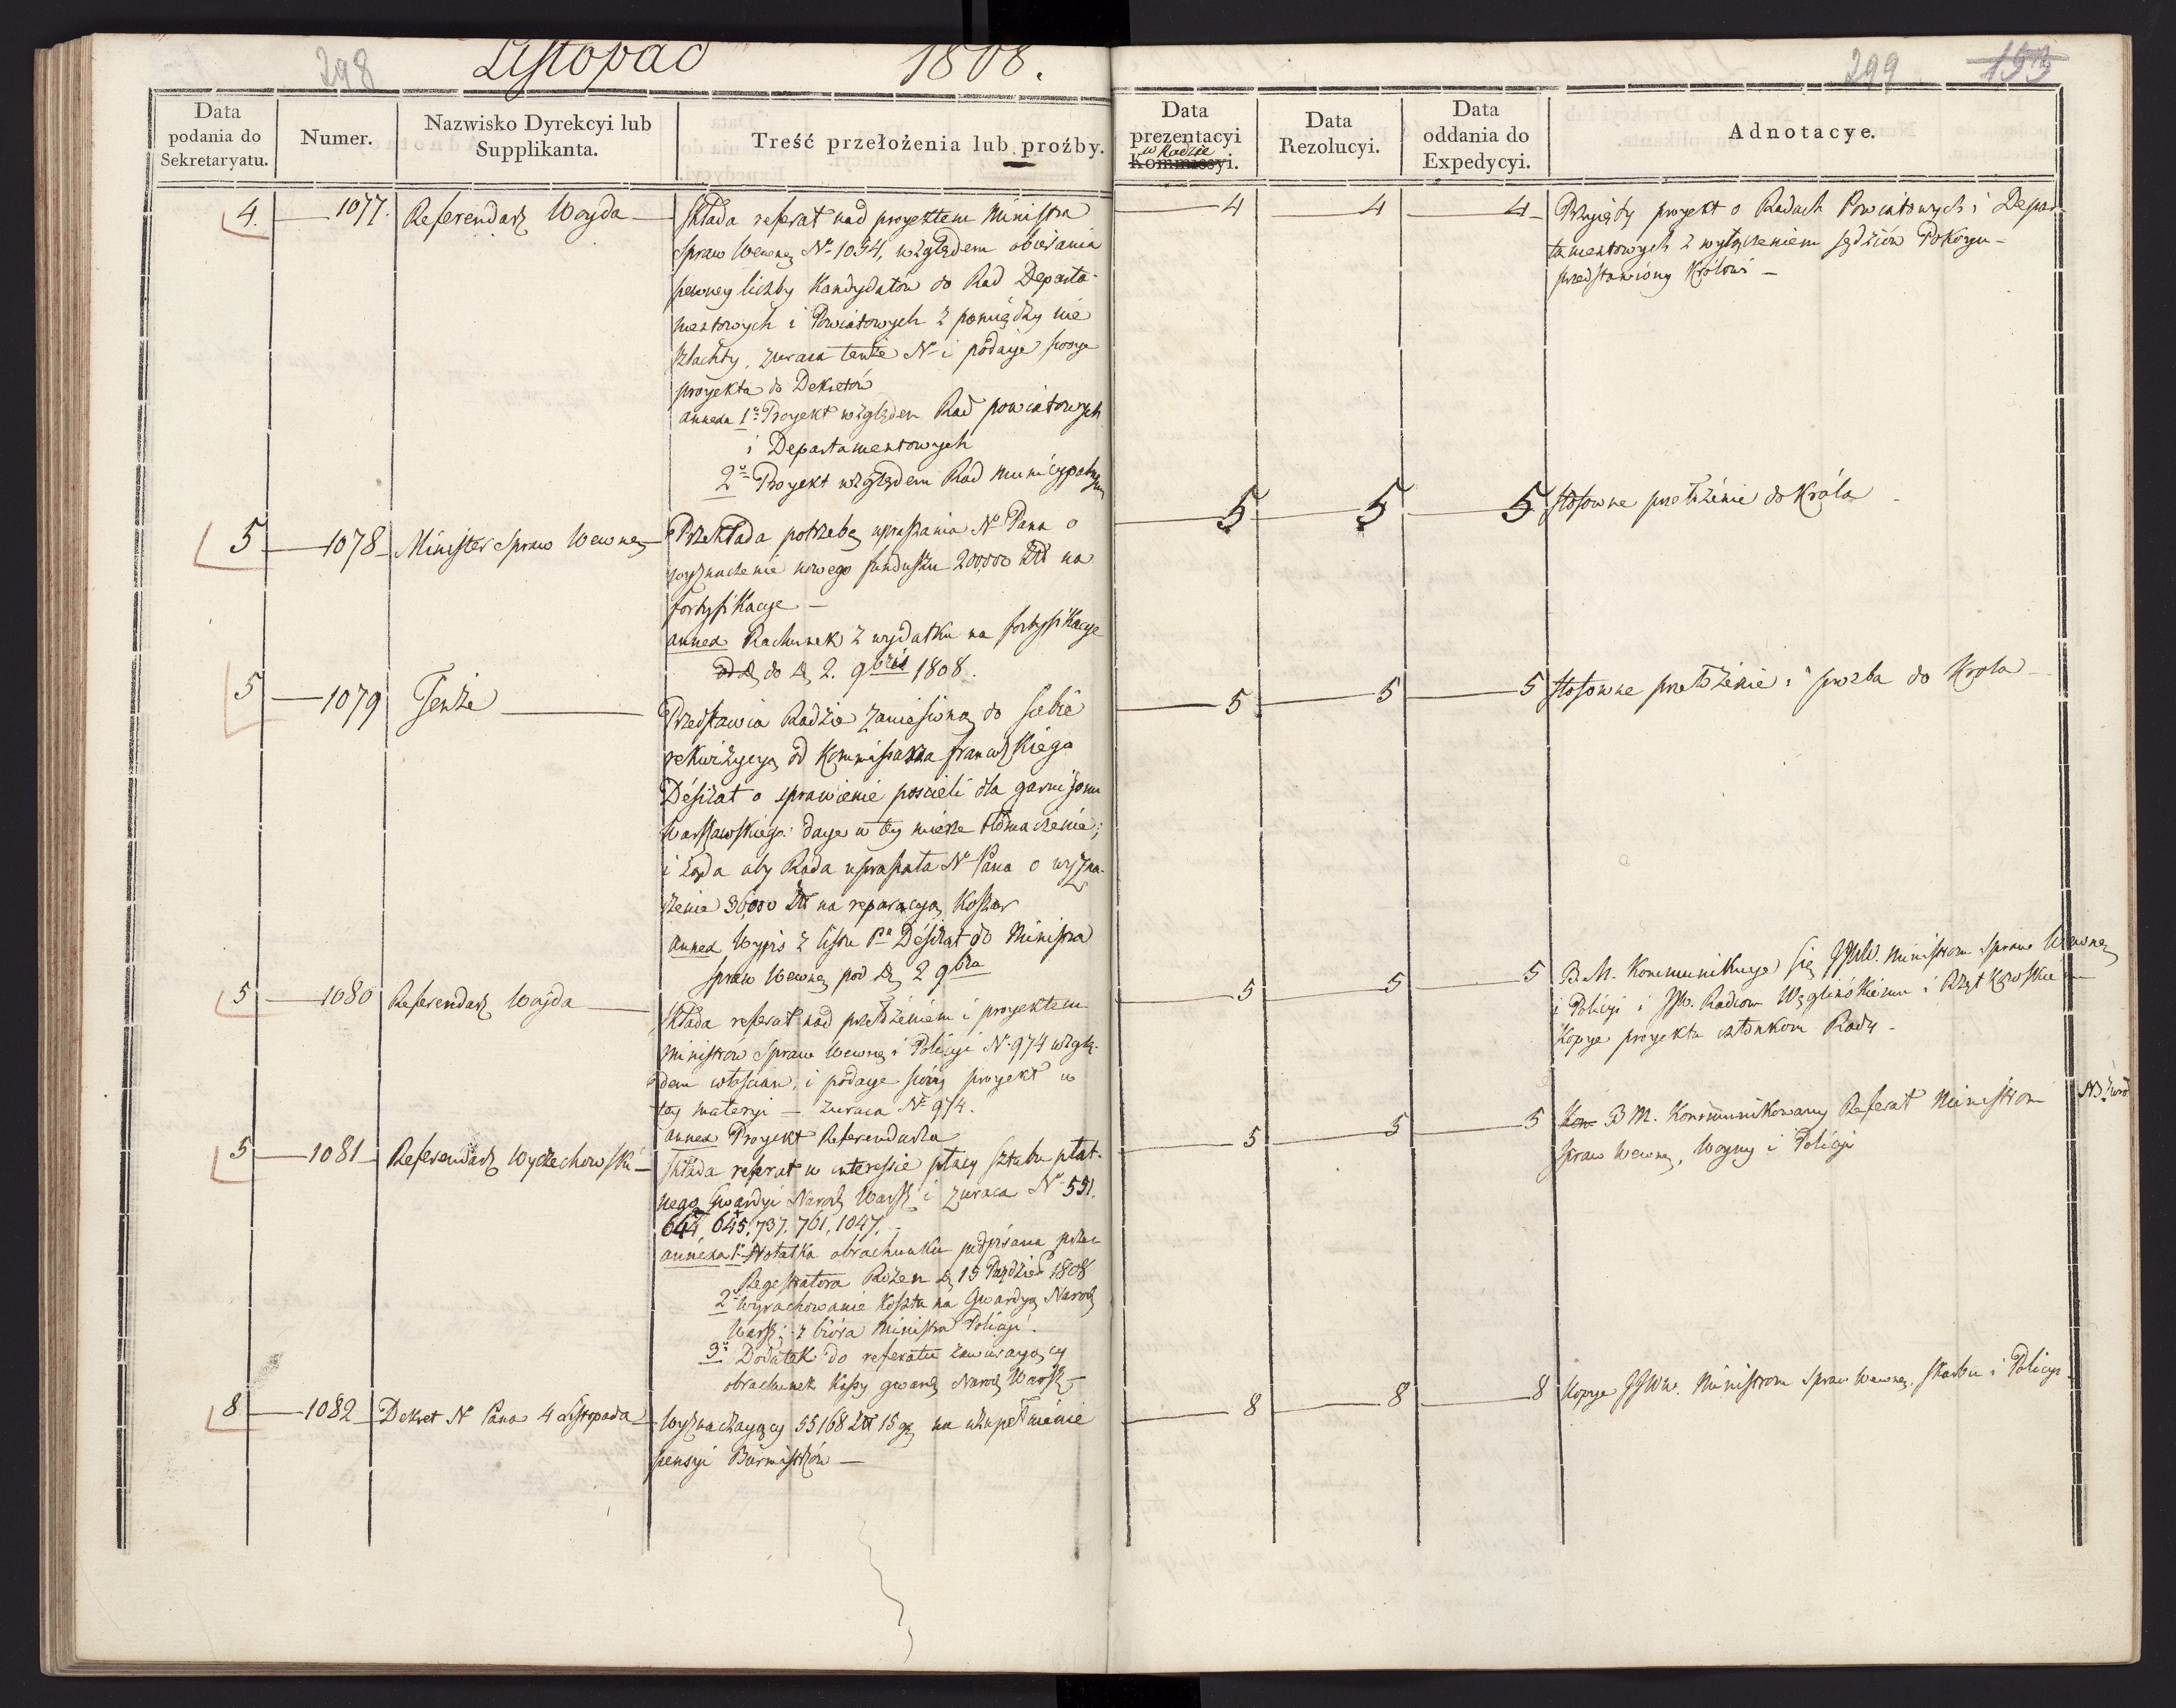 298
Listopad 1808.
Data podania do Sekretaryatu.
Numer.
Nazwisko Dyrekcyi lub Supplikanta.
Treść przełożenia lub proźby.
4. 1077. Referendarz Woyda
Składa referat nad proyektem Ministra
Spraw Wewnę. N 1054, względem obierania
pewney liczby Kandydatów do Rad Departa-
mentowych i Powiatowych z pomiędzy nie
szlachty, zwraca tenże N i podaje swoje
proyekta do Dekretów
annexa 1o Proyekt względem Rad powiatowych
i Departamentowych
2o Proyekt względem Rad Municypalnych
5 1078 Minister Spraw Wewnę
Przekłada potrzebę upraszania N Pana o
wyznaczenie nowego funduszu 200000 Złł na
fortyfikacye —
annex Rachunek z wydatku na fortyfikacye
do d. 2. 9bris 1808.
5 1079 Tenże
Przedstawia Radzie zaniesioną do siebie
rekwizycyą od Kommissarza francuzkiego
Désirat o sprawienie poscieli dla garnizonu
Warszawskiego: daye w tey mierze tłómaczenie;
i żąda aby Rada upraszała N Pana o wyzna-
czenie 30,000 Złł na reparacyą Koszar
annex Wypis z listu Pa Désirat do Ministra
Spraw Wewnę pod d. 2 9bra
5 1080 Referendarz Woyda
Składa referat nad przełożeniem i proyektem
Ministrów Spraw Wewnę i Policyi N 974 wzglę-
dem włoscian, i podaye swóy proyekt w
tey materyi — zwraca N 974.
annex Proyekt Referendarza
5 1081 Referendarz Wyczechowski
Składa referat w interessie płacy sztabu płat-
nego Gwardyi Narod. Warsz. i zwraca N 551.
644, 645, 737, 761, 1047.
annexa 1o Notatka obrachunku podpisana przez
Regestratora Rożen d. 15 Paździer 1808
2o Wyrachowanie Koszta na Gwardyą Narod.
Warsz. z biora Ministra Policyi.
3o Dodatek do referatu zawierający
obrachunek Kassy gward. Narod. Warsz.
8 1082 Dekret N Pana 4 Listopada
Wyznaczający 55168 Złł 15 gr. na uzupełnienie
pensyi Burmistrzów —
299 153
Data prezentacyi Kommissyi.
w Radzie
Data Rezolucyi.
Data oddania do Expedycyi.
Adnotacye.
4 4 4 Przyięty proyekt o Radach Powiatowych i Depar-
tamentowych z wyłączeniem sędziów Pokoyu -
przedstawiony Królowi —
5 5 5 stosowne przełożenie do Króla
5 5 5 stosowne przełożenie i prozba do Krola
5 5 5 B. M. Kommunikuye się JJWW. Ministrom Spraw Wewnę
i Policyi i JW. Radcom Węglińskiemu i
Kopye proyektu członkom Rady -
5 5 5 B M. Kommunikowany Referat Ministrom
Spraw Wewnę, Woyny i Policyi
8 8 8 Kopye JJWW. Ministrom Spraw Wewnę. Skarbu i Policyi